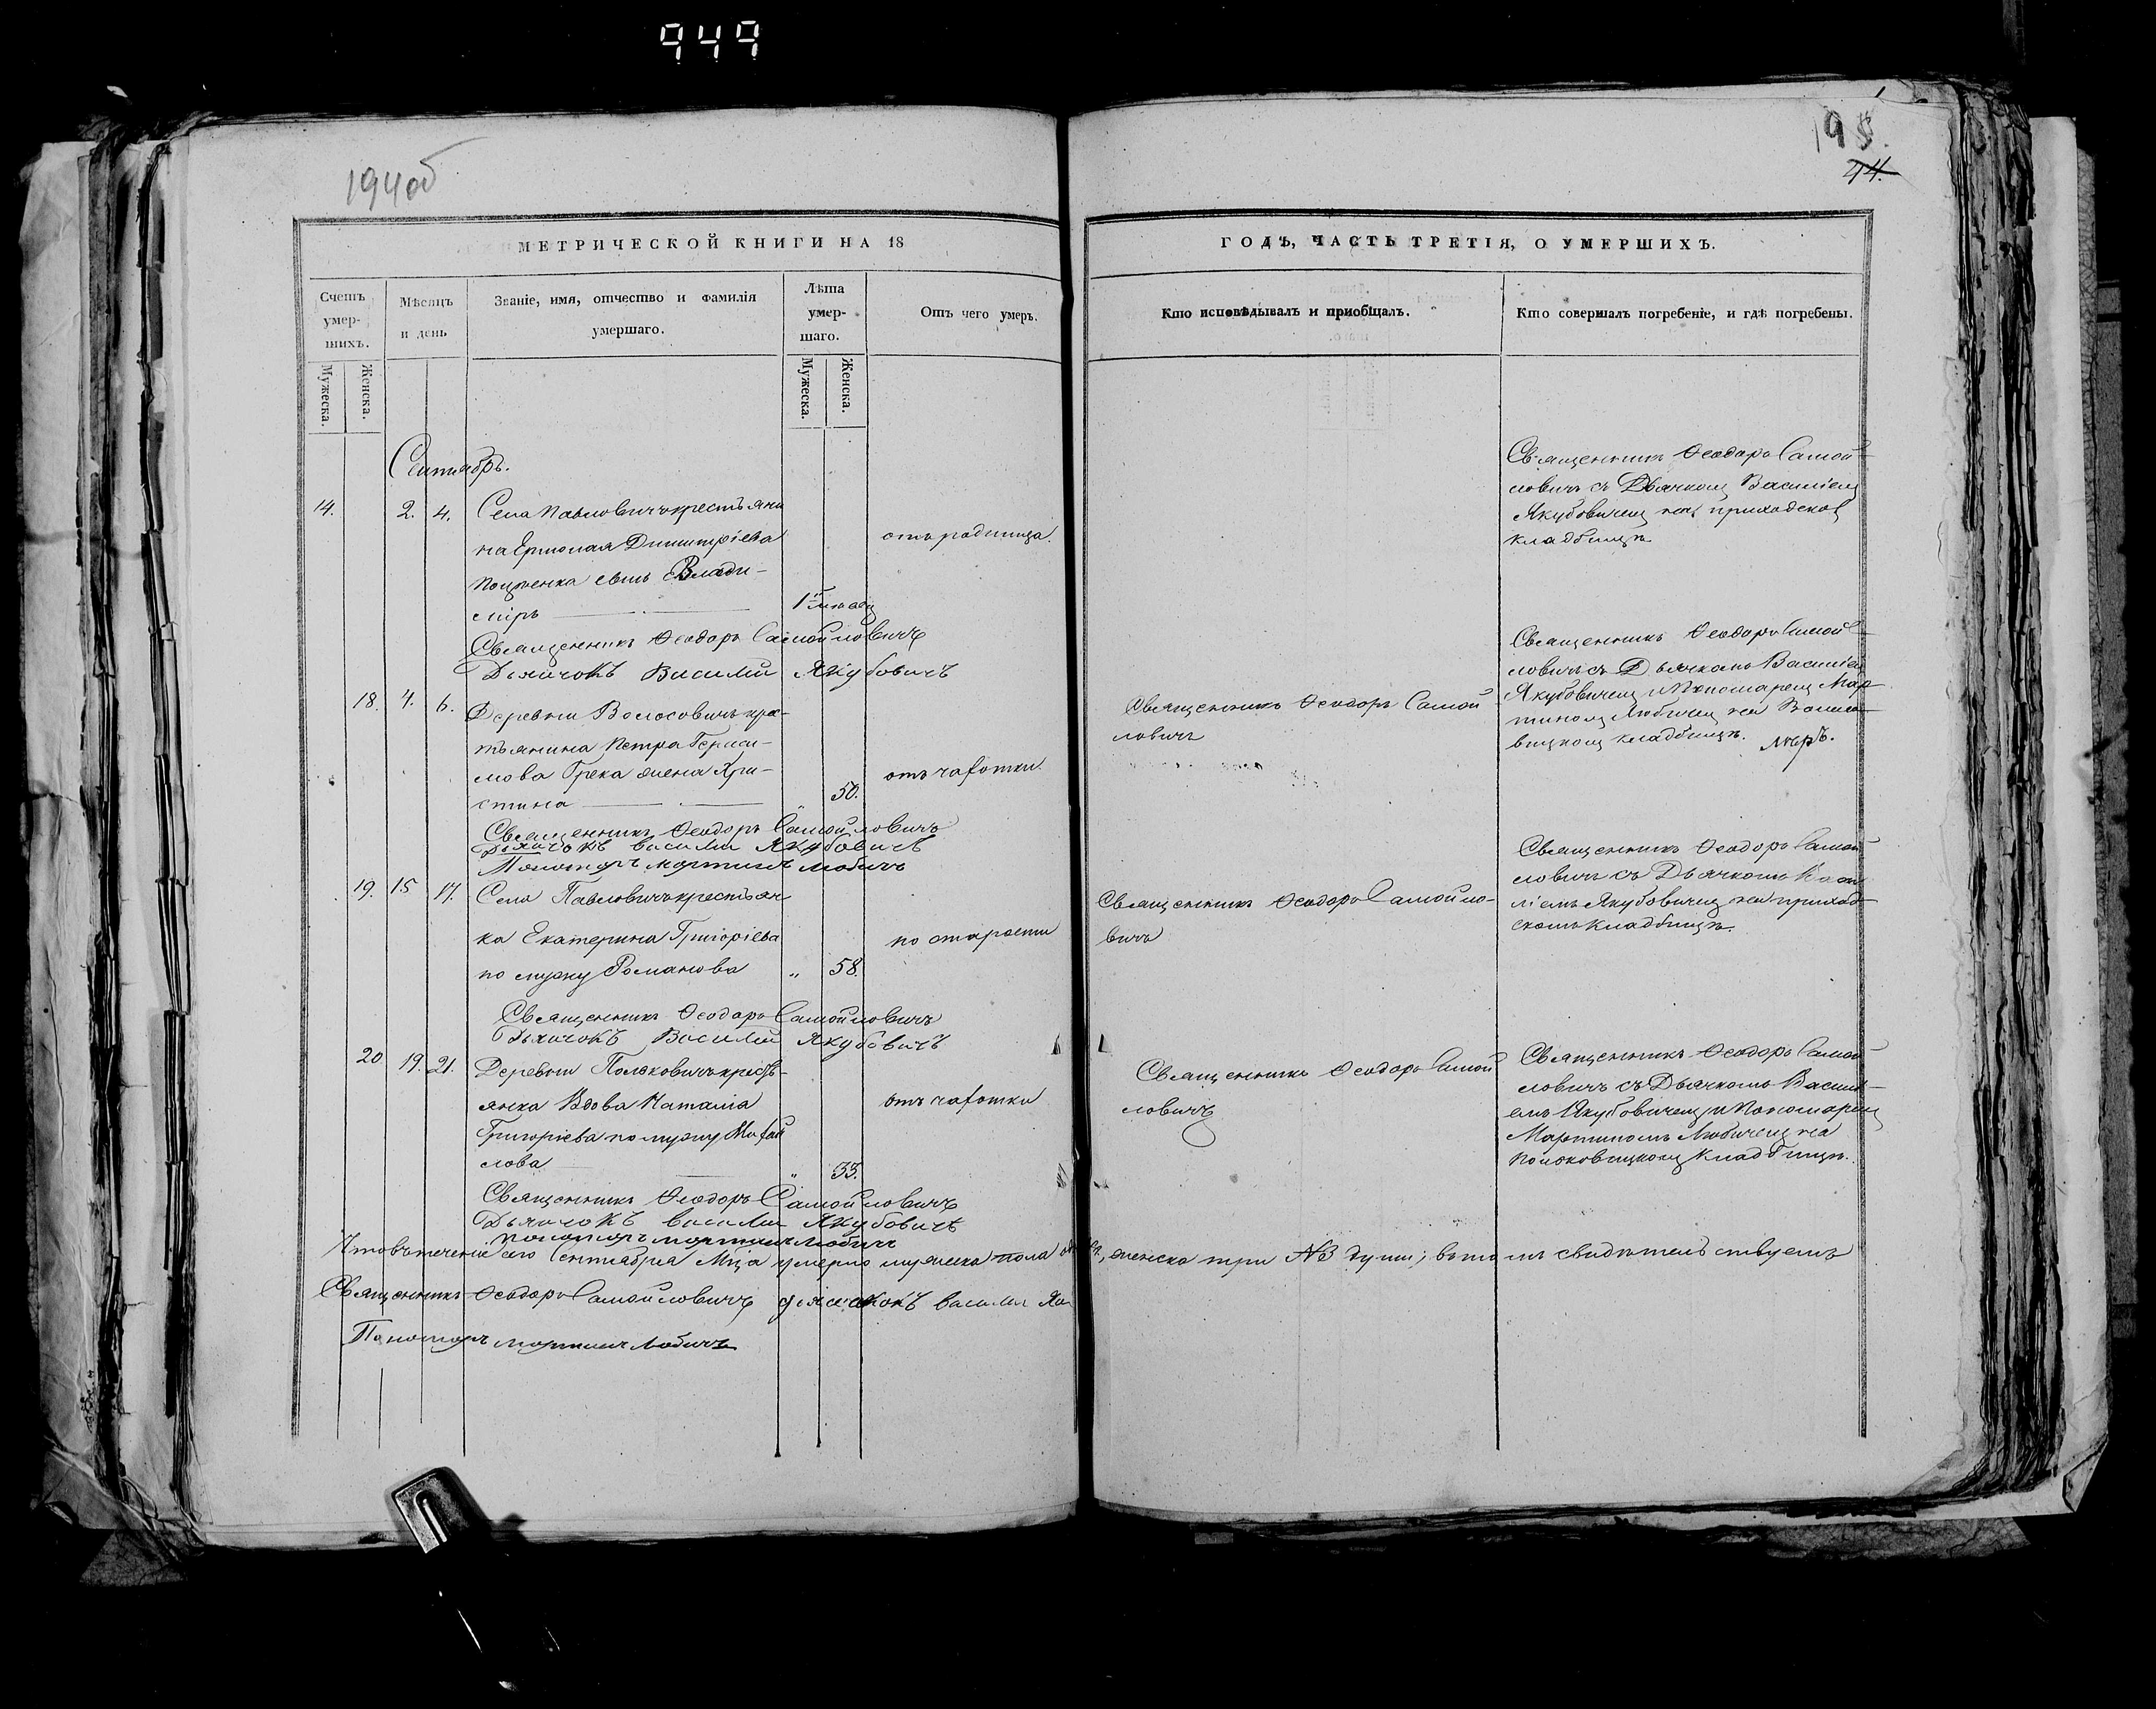 949
194об
195.
44.
МЕТРИЧЕСКОЙ КНИГИ НА 18
ГОДЪ, ЧАСТЬ ТРЕТІЯ, О УМЕРШИХЪ.
Счетъ умер-шихъ.
Мѣсяцъ и день
Званіе, имя, отчество и фамилія умершаго.
Лѣта умер-шаго.
Отъ чего умеръ.
Кто исповѣдывалъ и пріобщалъ.
Кто совершалъ погребеніе, и гдѣ погребены.
Мужеска.
Женска.
Мужеска.
Женска.
Сентябрь.
14.
2. 4.
Села Павловичъ крестьяни
на Ермолая Димитріева
сынъ Влади-
міръ
1
отъ родимца.
Священникъ Ѳеодоръ Самой-
ловичъ съ Дьячкомъ Василіемъ
Якубовичемъ на приходскомъ
кладбищѣ
Священникъ Ѳеодоръ Самойловичъ
Дьячокъ Василий Якубовичъ
18. 4. 6.
Деревни Волосовичъ кре-
стьянина Петра Гераси-
мова Грека жена Хри-
стина
" 50.
отъ чахотки.
Священникъ Ѳеодоръ Самой-
ловичъ
Священникъ Ѳеодоръ Самой-
ловичъ съ Дьячкомъ Василіемъ
Якубовичемъ и Пономаремъ Мар-
тиномъ Любичемъ на
кладбищѣ.
Священникъ Ѳеодоръ Самойловичъ
Дьячокъ Василий Якубовичъ
Пономарь Мартинъ Любичъ
19. 15 17.
Села Павловичъ крестьян
ка Екатерина Григоріева
по мужу Романова
" 58.
по старости
Священникъ Ѳеодоръ Самойло-
вичъ
Священникъ Ѳеодоръ Самой
ловичъ съ Дьячкомъ Васи
ліемъ Якубовичемъ на приход-
скомъ кладбищѣ.
Священникъ Ѳеодоръ Самойловичъ
Дьячокъ Василий Якубовичъ
20 19. 21.
Деревни Полковичъ кресть-
янка Вдова Наталія
Григоріева по мужу
лова
"
отъ чахотки
Священникъ Ѳеодоръ Самой
ловичъ
Священникъ Ѳеодоръ Самой
ловичъ съ Дьячкомъ Василі-
емъ Якубовичемъ и Пономаремъ
Мартиномъ Любичемъ на
Полковицкомъ кладбищѣ.
Священникъ Ѳеодоръ Самойловичъ
Дьячокъ Василий Якубовичъ
Пономарь Мартинъ Любичъ
Что въ теченіе сего Сентября Мца умерло мужеска пола женска три №3 души; въ томъ свидѣтельствуемъ
Священникъ Ѳеодоръ Самойловичъ дьячокъ Василий
Пономарь Мартинъ Любичъ